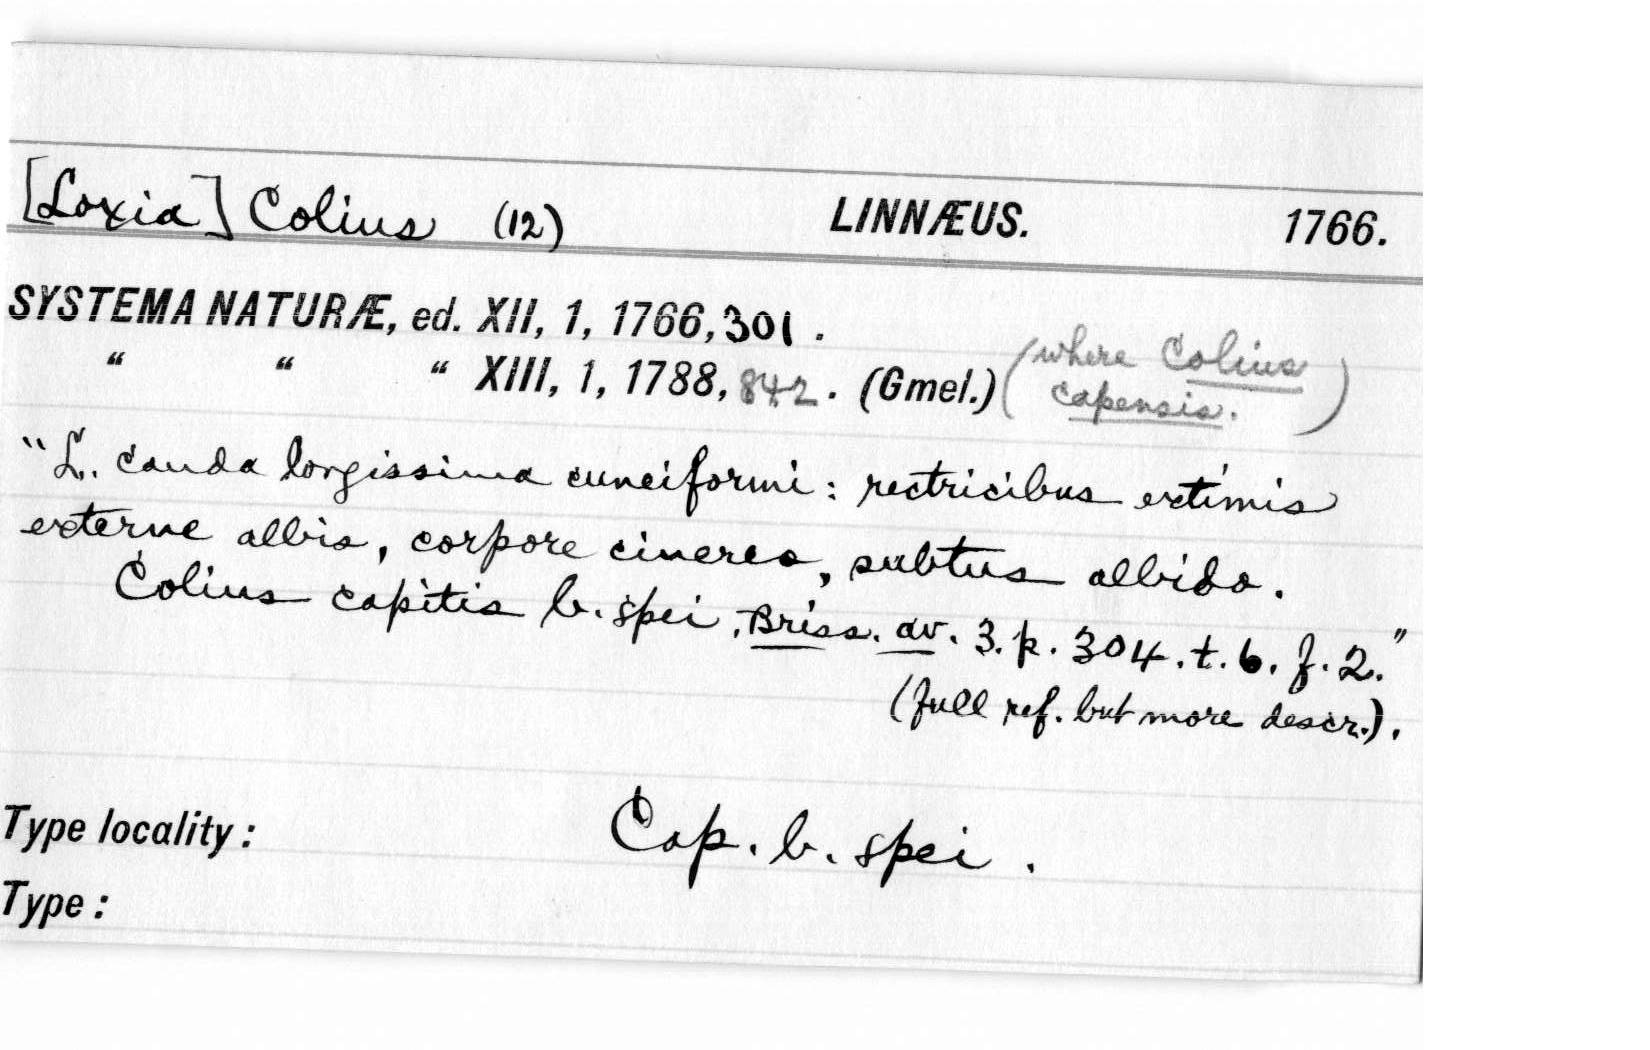 [Loxia] Colius (12) LINNÆUS. 1766.
SYSTEMA NATURÆ, ed. XII, 1, 1766, 301.
“ “ “ XIII, 1, 1788, 842. (Gmel.) (where Colius
capensis.)
“L. cauda longissima cuneiformi: rectricibus extimis
externe albis, corpore cinereo, subtus albido.
Colius capitis b. spei, Briss. av. 3. p. 304. t. 6. f. 2.”
(full ref. but more descr.).
Type locality: Cap. b. spei.
Type: